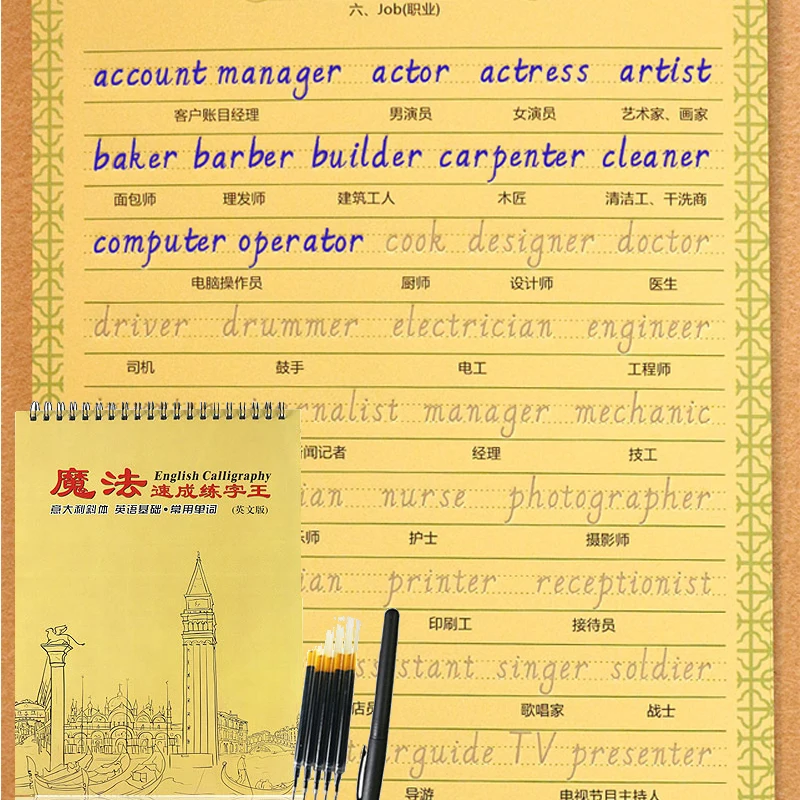 六、Job(职业)
account manager actor actress artist
客户账目经理 男演员 女演员 艺术家、画家
baker barber builder carpenter cleaner
面包师 理发师 建筑工人 木匠 清洁工、干洗商
computer operator cook designer doctor
电脑操作员 厨师 设计师 医生
driver drummer electrician engineer
司机 鼓手 电工 工程师
manager mechanic
经理 技工
nurse photographer
护士 摄影师
printer receptionist
印刷工 接待员
singer soldier
歌唱家 战士
TV presenter
导游 电视节目主持人
魔法 English Calligraphy
速成练字王
意大利斜体 英语基础·常用单词 (英文版)